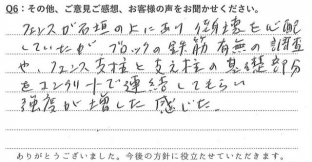 Q6：その他、ご意見ご感想、お客様の声をお聞かせください。
フェンスが石垣の上にあり 倒壊を心配
していたが ブロックの鉄筋有無の調査
や、フェンス支柱と支え柱の基礎部分
をコンクリートで連結してもらい
強度が増した感じた。
ありがとうございました。今後の方針に役立たせていただきます。